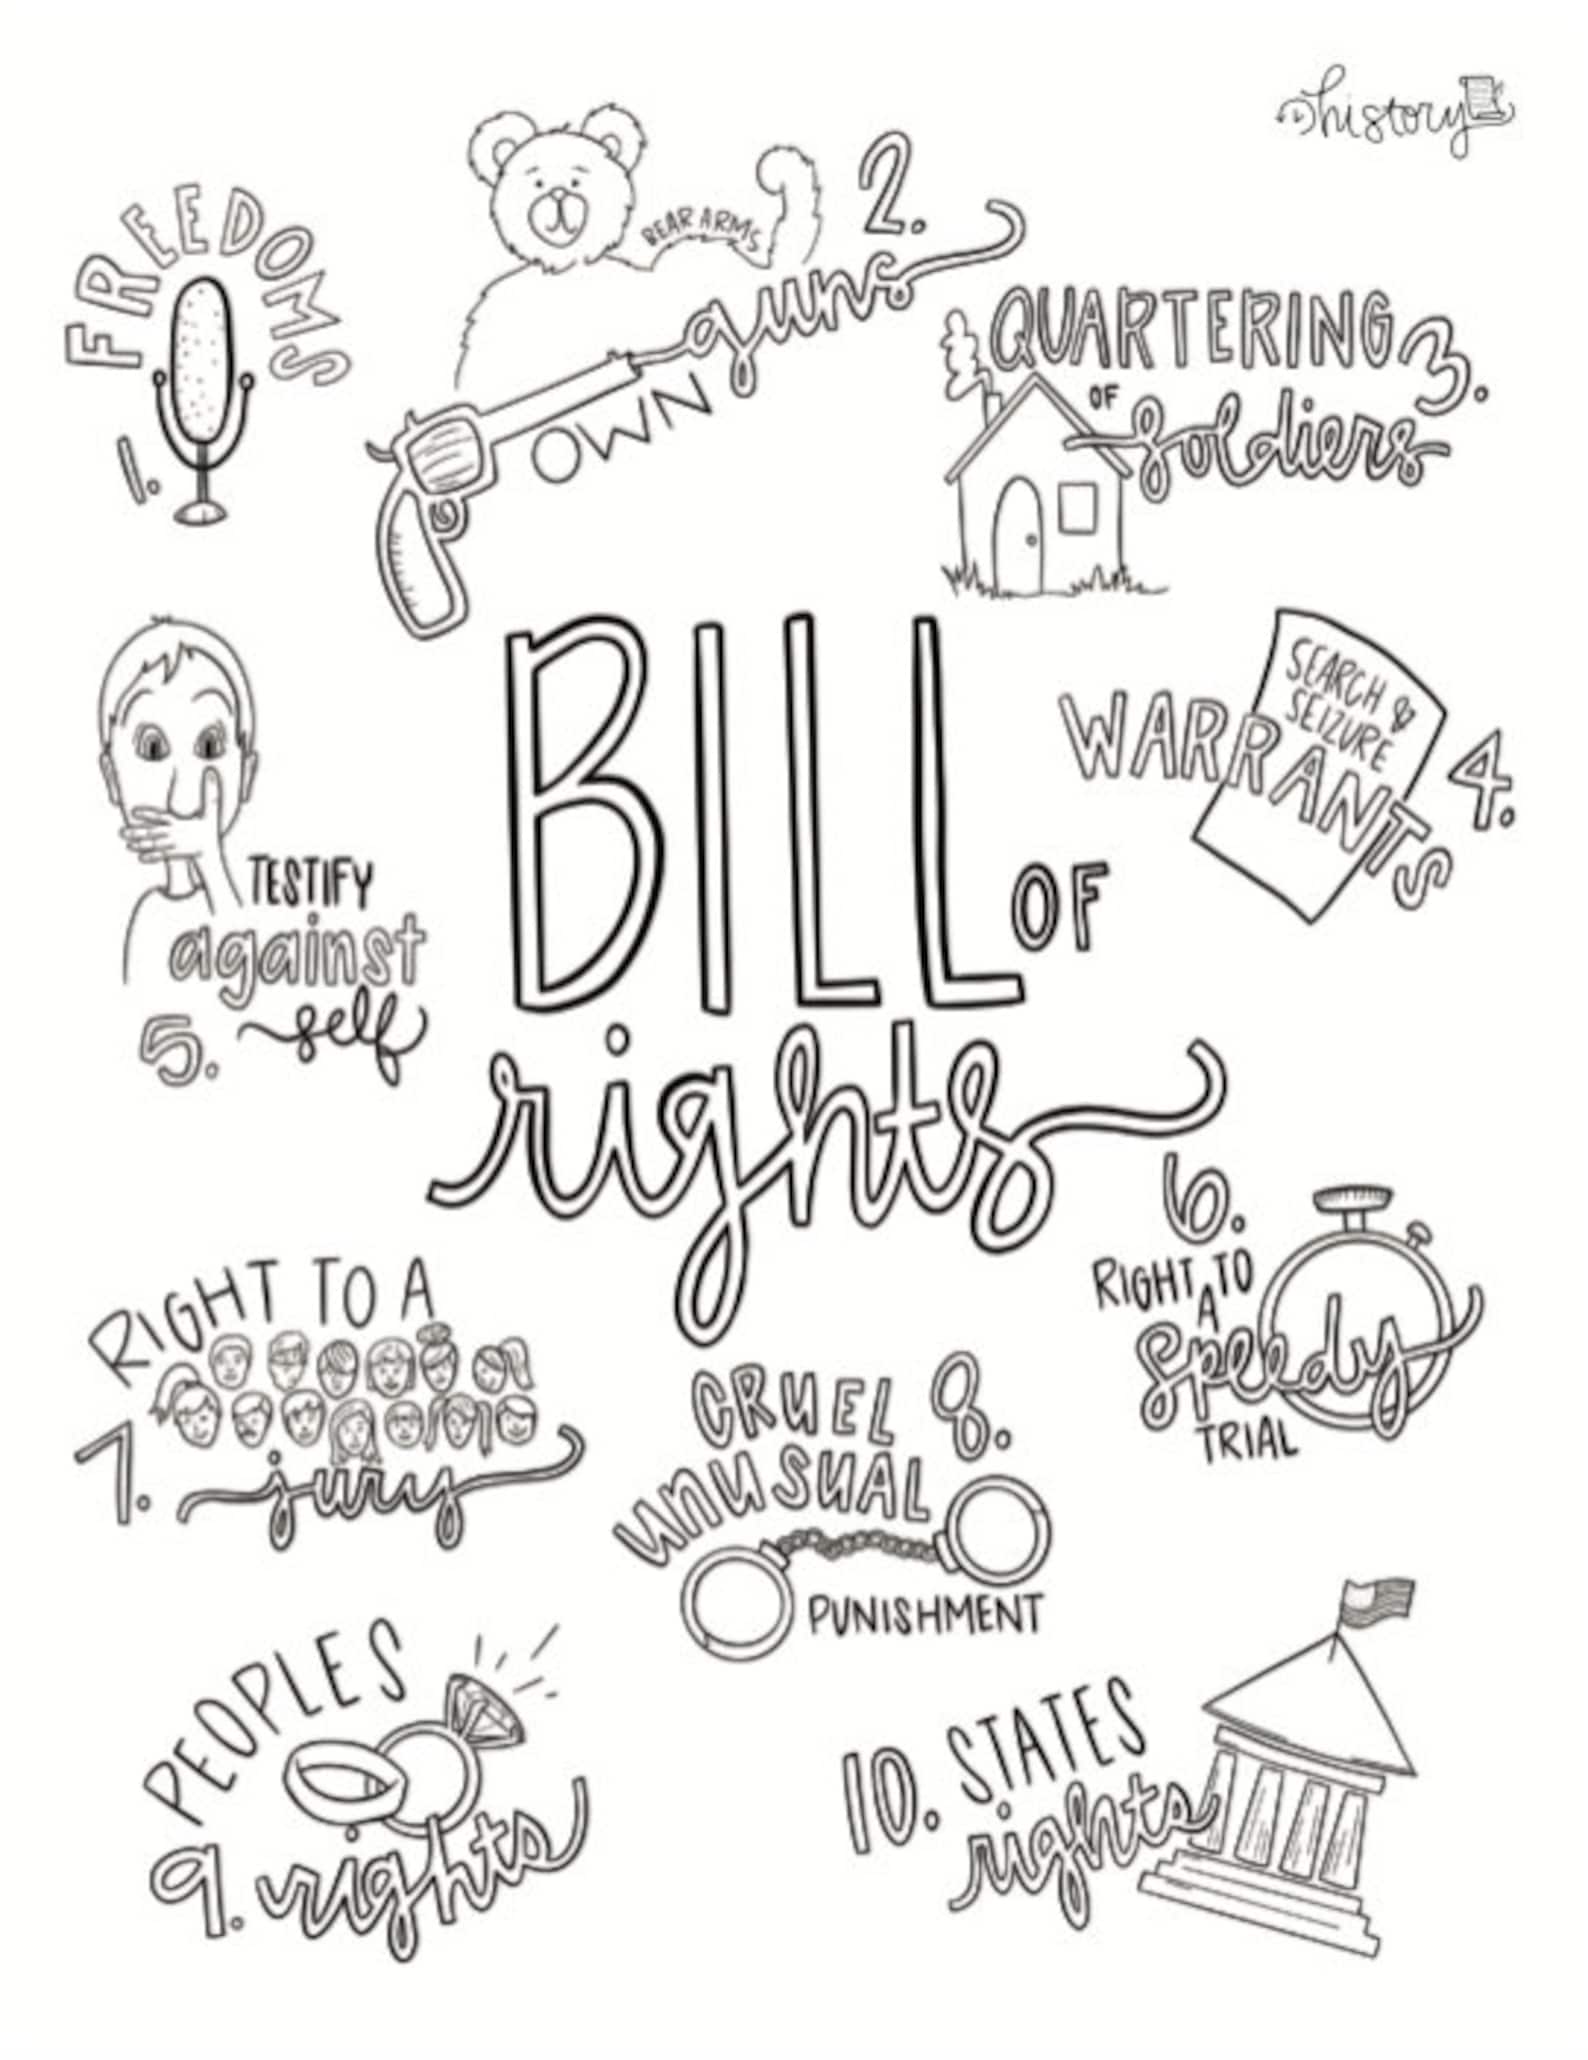 history
FREEDOMS
1.
BEAR ARMS
2.
OWN guns
QUARTERING
OF soldiers
3.
SEARCH &
SEIZURE
WARRANTS
4.
TESTIFY
against
self
5.
BILL OF
rights
6.
RIGHT TO
A
speedy
TRIAL
RIGHT TO A
7. jury
CRUEL 8.
UNUSUAL
PUNISHMENT
PEOPLES
9. rights
10. STATES
rights